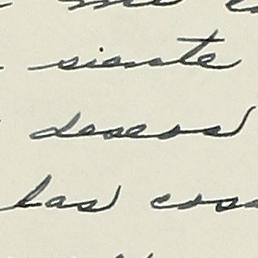 siente
deseos
las cosa